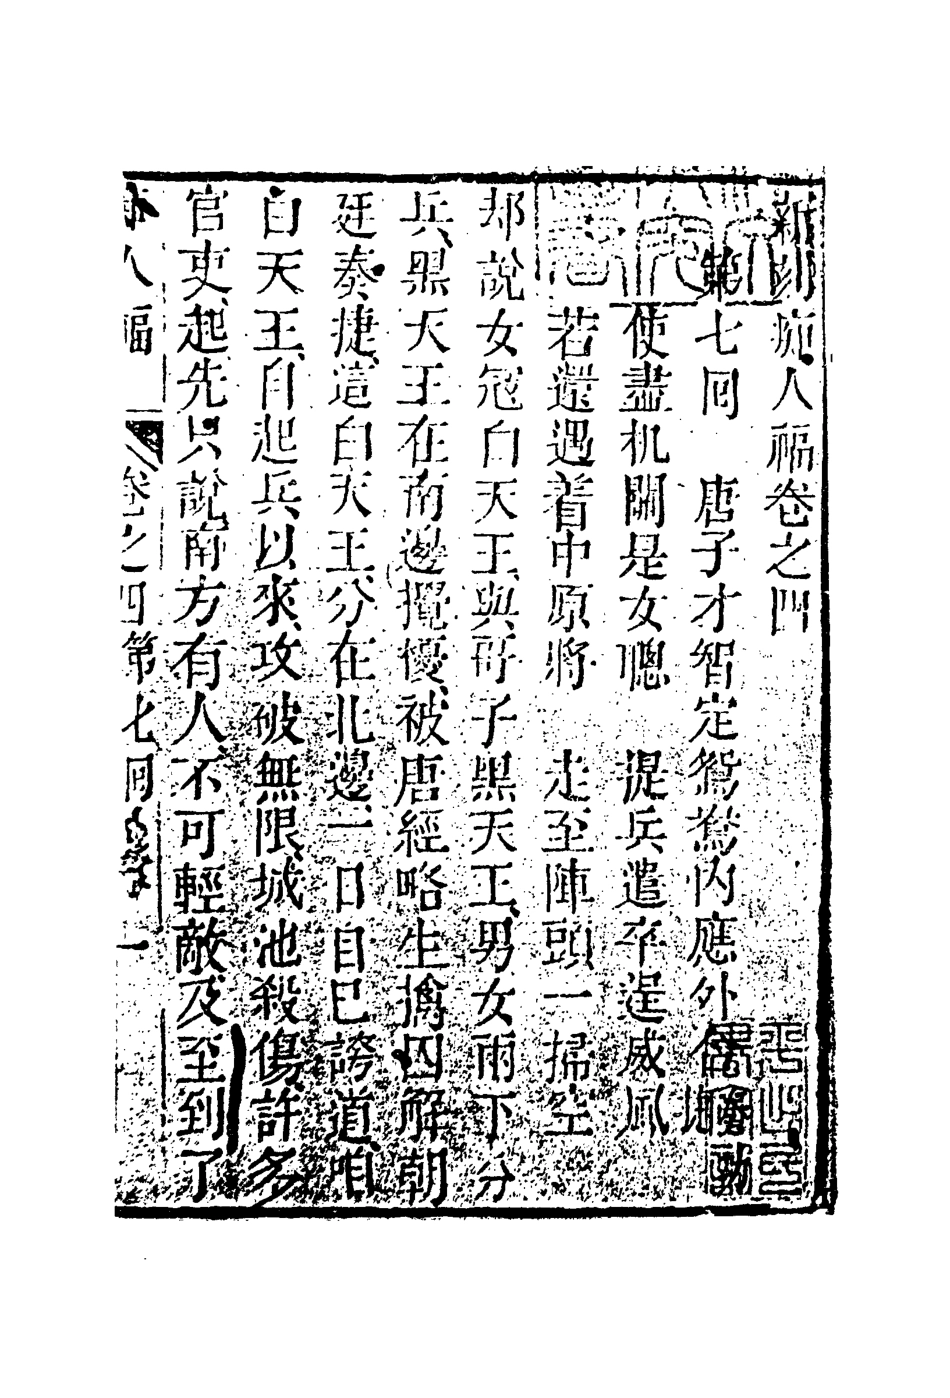 新刻痴人福卷之四
第七回　唐子才智定鴛鴦內應外
使盡机關是女聰　提兵遣卒逞威風
若還遇着中原將　走至陣頭一掃空
却說女冦白天王與哥子黑天王男女兩下分
兵黑天王在南邊攪擾被唐經略生擒囚解朝
廷奏捷這白天王分在北邊一日自巳謗道咱
白天王自起兵以來攻破無限城池殺傷許多
官吏起先只說南方有人不可輕敵及至到了
人福　卷之四第七回　一